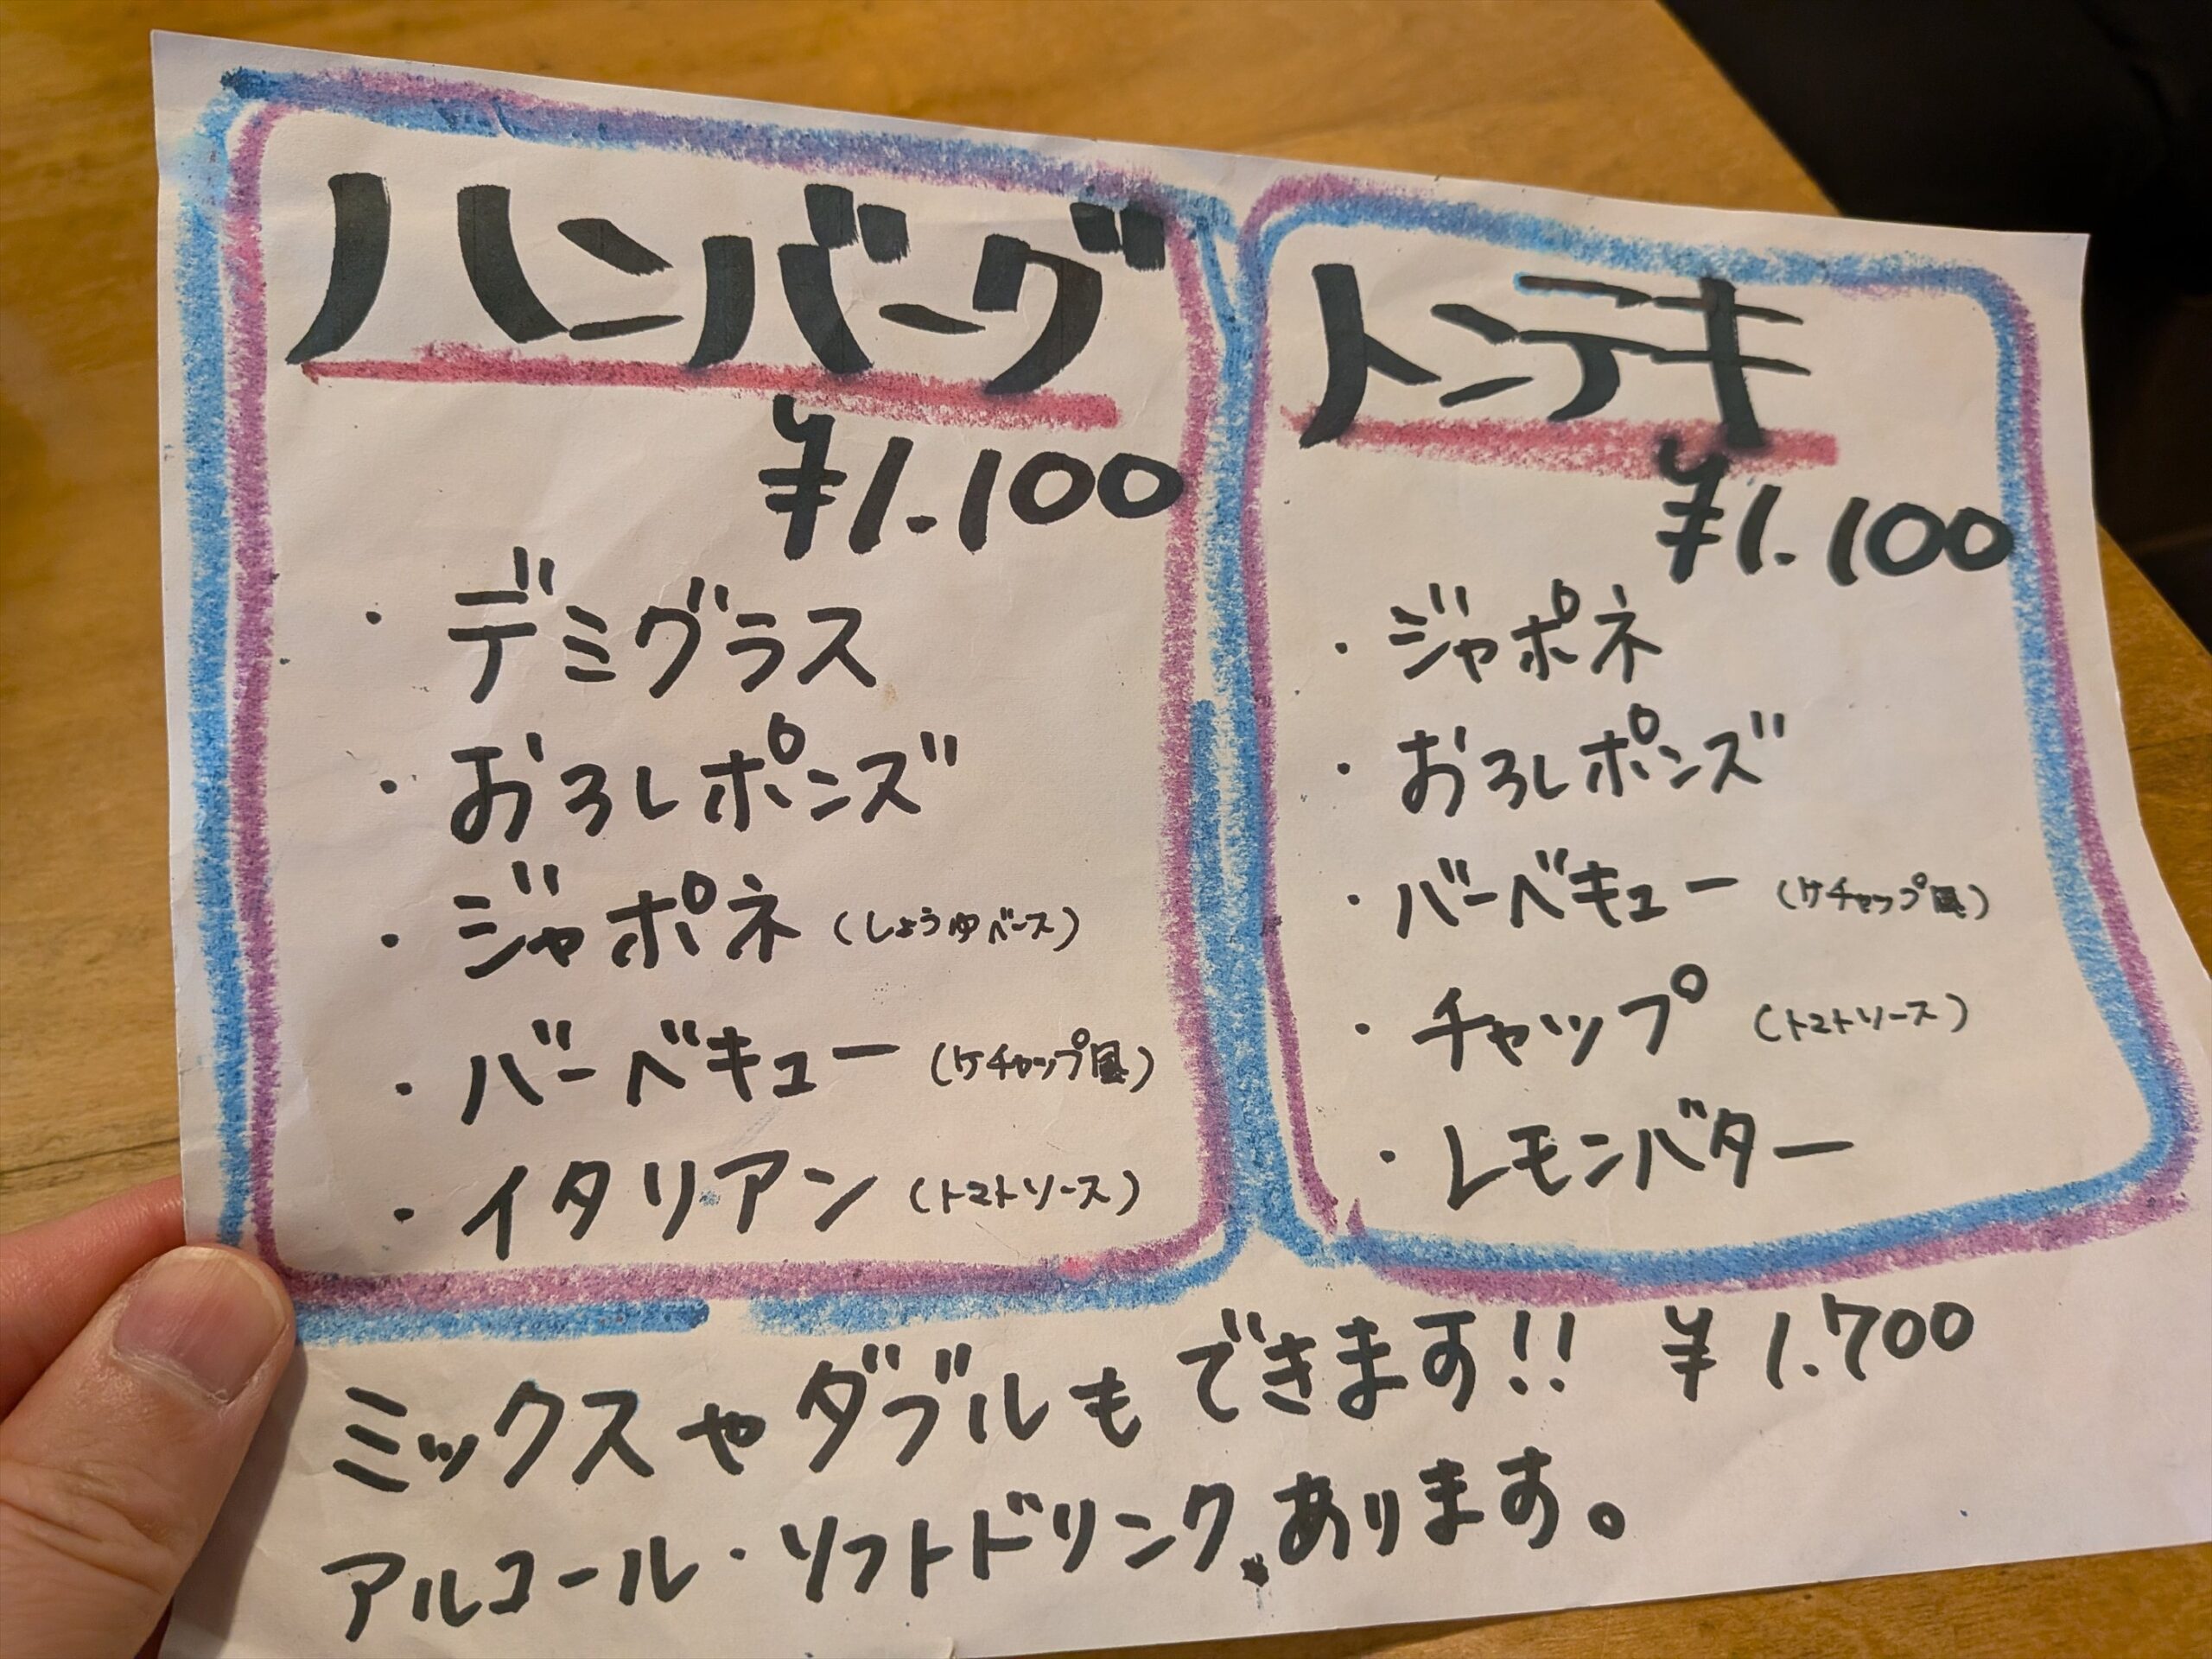 ハンバーグ
¥1.100
・デミグラス
・おろしポンズ
・ジャポネ（しょうゆベース）
・バーベキュー（ケチャップ風）
・イタリアン（トマトソース）
トンテキ
¥1.100
・ジャポネ
・おろしポンズ
・バーベキュー（ケチャップ風）
・チャップ（トマトソース）
・レモンバター
ミックスやダブルもできます!! ¥1.700
アルコール・ソフトドリンクあります。